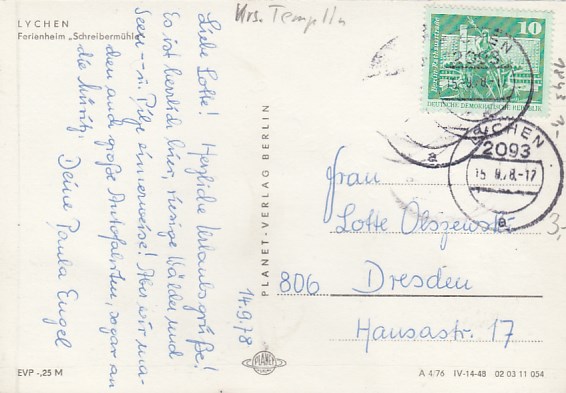 LYCHEN
Ferienheim „Schreibermühle“
Krs. Templin
Liebe Lotte! Herzliche Urlaubsgrüße!
Es ist herrlich hier, riesige Wälder und
Seen – u. Pilze eimerweise! Aber wir ma-
chen auch große Autofahrten, sogar an
die Müritz. Deine Paula Engel
14.9.78
PLANET-VERLAG BERLIN
10
DEUTSCHE DEMOKRATISCHE REPUBLIK
LYCHEN
2093
15.9.78.-17
a
LYCHEN
2093
15.9.78.-17
a
1843
3,-
3,-
Frau
Lotte Olszenski
806 Dresden
Hansastr. 17
EVP -,25 M
PLANET
A 4/76 IV-14-48 02 03 11 054